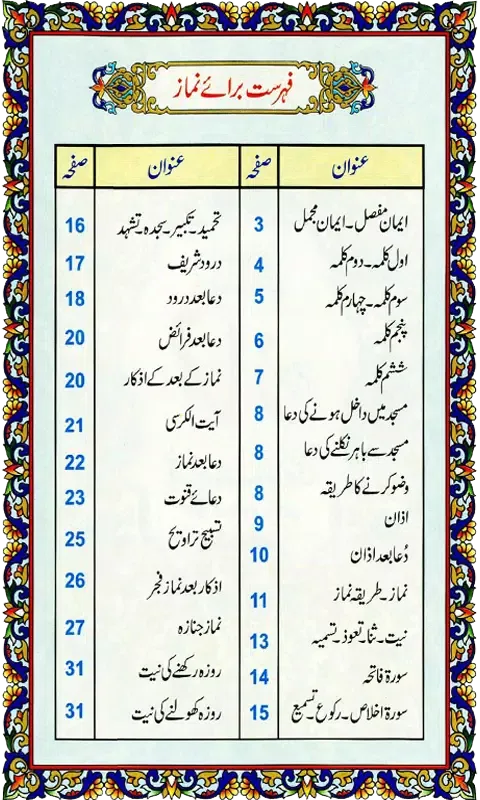 فہرست برائے نماز
عنوان صفحہ
ایمان مفصل۔ ایمان مجمل 3
اول کلمہ۔ دوم کلمہ 4
سوم کلمہ۔ چہارم کلمہ 5
پنجم کلمہ 6
ششم کلمہ 7
مسجد میں داخل ہونے کی دعا 8
مسجد سے باہر نکلنے کی دعا 8
وضو کرنے کا طریقہ 8
اذان 9
دُعا بعد اذان 10
نماز۔ طریقہ نماز 11
نیت۔ ثنا۔ تعوذ۔ تسمیہ 13
سورۃ فاتحہ 14
سورۃ اخلاص۔ رکوع۔ تسمیع 15
عنوان صفحہ
تحمید۔ تکبیر۔ سجدہ۔ تشہد 16
درود شریف 17
دعا بعد درود 18
دعا بعد فرائض 20
نماز کے بعد کے اذکار 20
آیت الکرسی 21
دعا بعد نماز 22
دعائے قنوت 23
تسبیح تراویح 25
اذکار بعد نماز فجر 26
نماز جنازہ 27
روزہ رکھنے کی نیت 31
روزہ کھولنے کی نیت 31